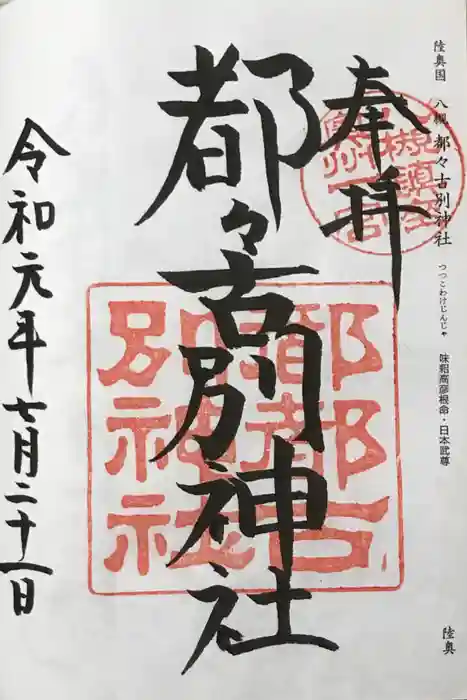 陸奥国 八槻 都々古別神社 つつこわけじんじゃ 味耜高彦根命・日本武尊
陸奥
奉拝
都々古別神社
令和元年七月二十一日
都都古
別神社